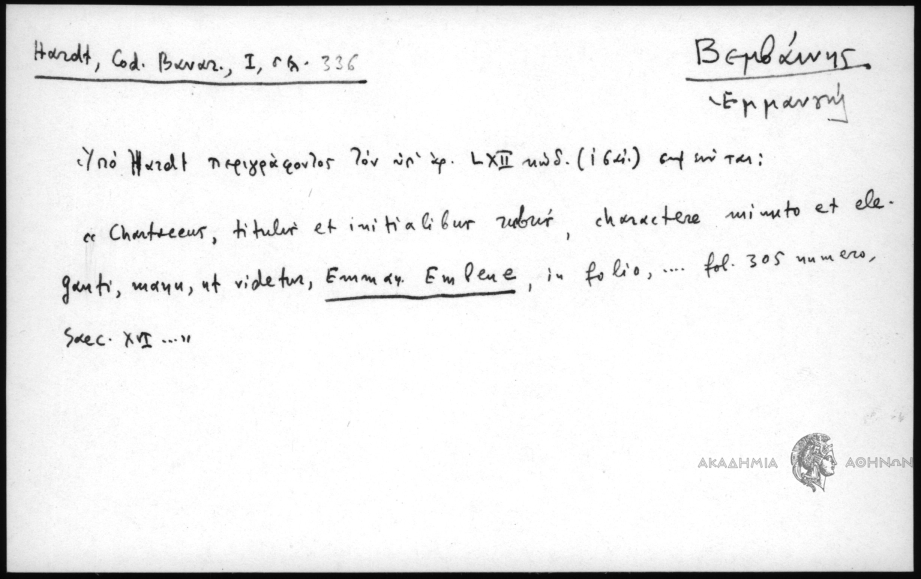 Hardt, Cod. Bavar., I, σελ. 336
Βεμβάινης
Ἐμμανουὴλ
Ὑπὸ Hardt περιγράφοντος τὸν ὑπ' ἀρ. LXII κώδ. (ις' αἰ.) σημειοῦται:
« Chartaceus, titulis et initialibus rubris, charactere minuto et ele-
ganti, manu, ut videtur, Emman. Embene, in folio, .... fol. 305 numero,
Saec. XVI ...»
ΑΚΑΔΗΜΙΑ ΑΘΗΝΩΝ